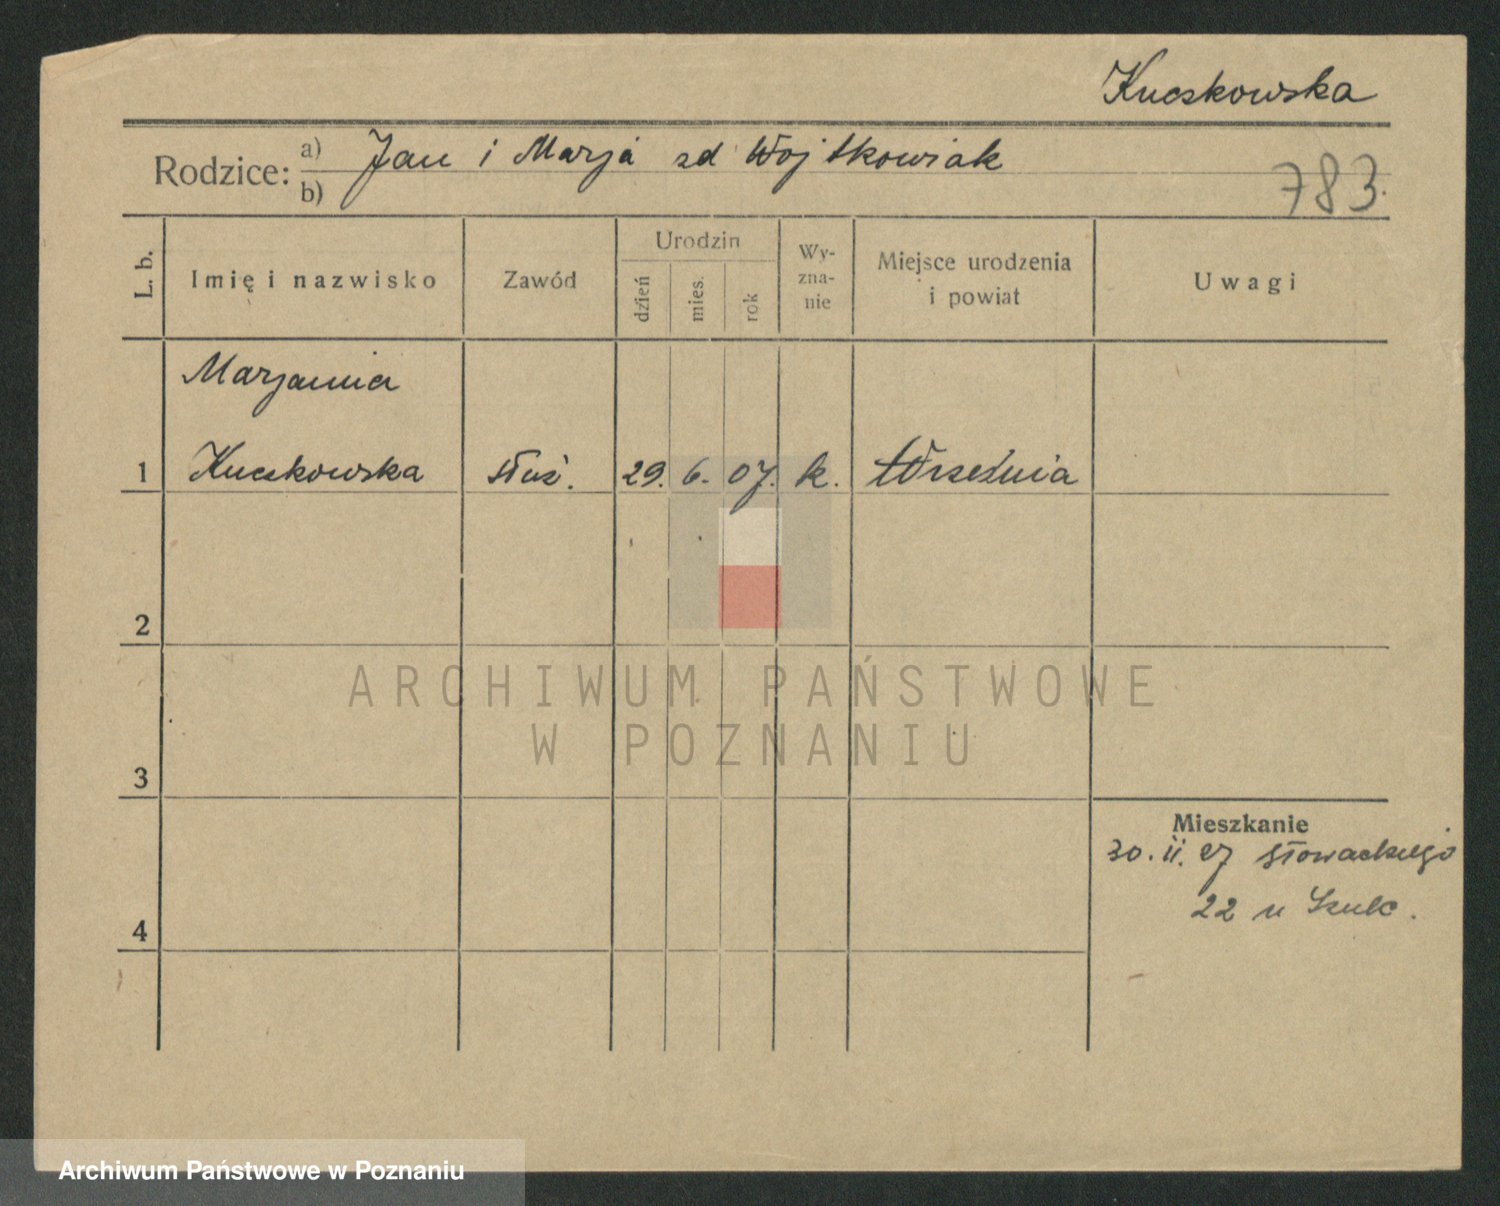 Kuczkowska
Rodzice: a) Jan i Marja zd Wojtkowiak
b)
783.
L. b.
Imię i nazwisko
Zawód
Urodzin
dzień
mies.
rok
Wy-
zna-
nie
Miejsce urodzenia
i powiat
Uwagi
Marjanna
1 Kuczkowska służ. 29. 6. 07. k. Września
2
ARCHIWUM PAŃSTWOWE
W POZNANIU
3
Mieszkanie
30. 11. 27 Słowackiego
22 u Szulc.
4
Archiwum Państwowe w Poznaniu